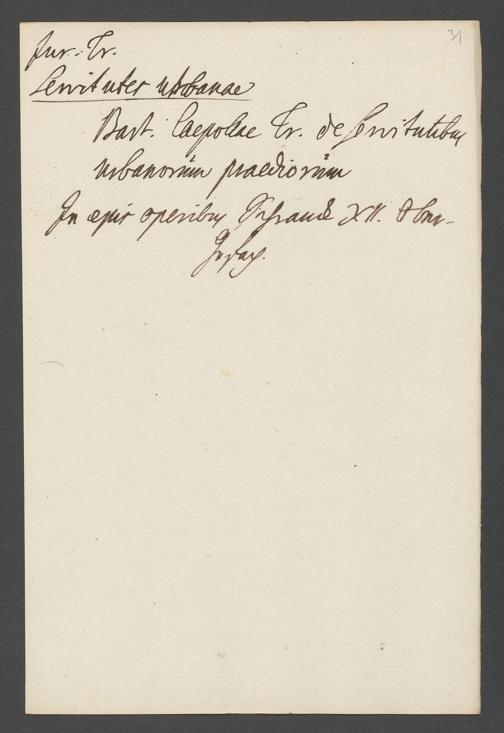 31
Jur. Tr.
Servitutes urbanae
Bart. Caepollae Tr. de servitutibus
urbanorum praediorum
In ejus operibus